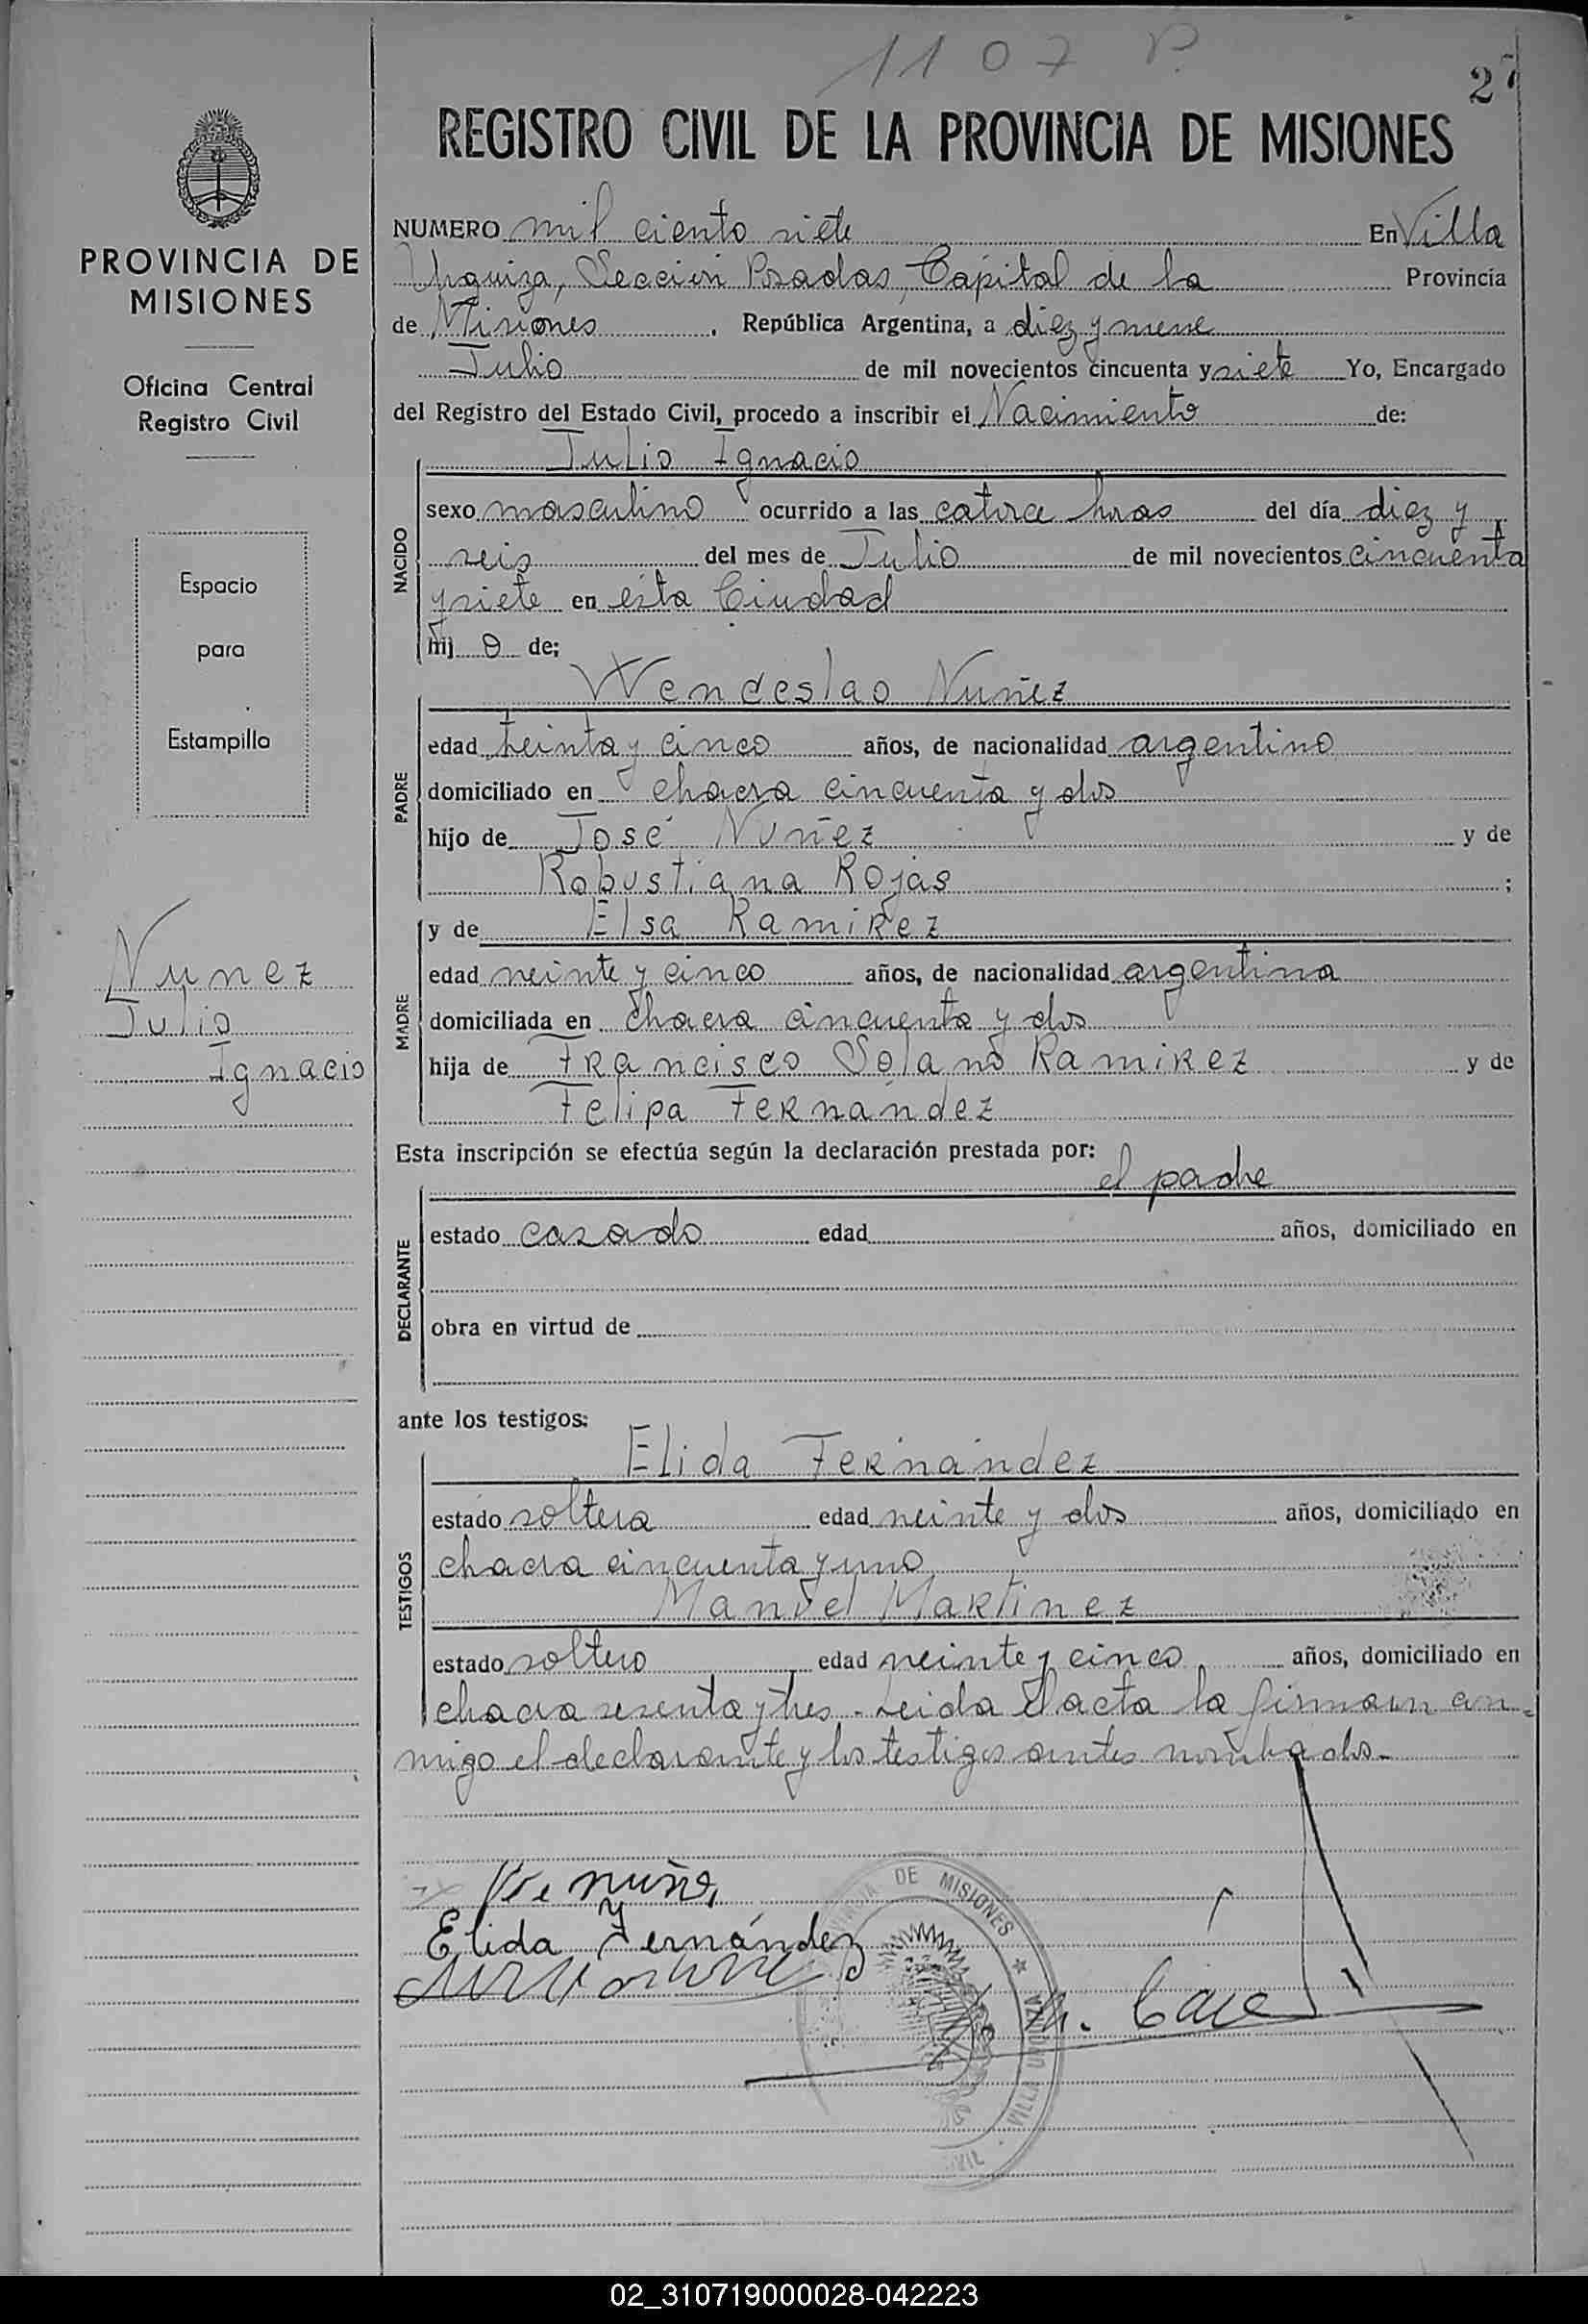 1107 P.
27
REGISTRO CIVIL DE LA PROVINCIA DE MISIONES
PROVINCIA DE
MISIONES
Oficina Central
Registro Civil
Espacio
para
Estampilla
Nunez
Julio
Ignacio
NUMERO mil ciento siete En Villa
Urquiza, Sección Posadas, Capital de la Provincia
de Misiones, República Argentina, a diez y nueve
Julio de mil novecientos cincuenta y siete Yo, Encargado
del Registro del Estado Civil, procedo a inscribir el Nacimiento de:
Julio Ignacio
NACIDO
sexo masculino ocurrido a las catorce horas del día diez y
seis del mes de Julio de mil novecientos cincuenta
y siete en esta Ciudad
hij o de;
Wendeslao Nuñez
PADRE
edad treinta y cinco años, de nacionalidad argentino
domiciliado en chacra cincuenta y dos
hijo de José Nuñez y de
Robustiana Rojas ;
y de Elsa Ramirez
MADRE
edad veinte y cinco años, de nacionalidad argentina
domiciliada en chacra cincuenta y dos
hija de Francisco Solano Ramirez y de
Felipa Fernandez
Esta inscripción se efectúa según la declaración prestada por:
el padre
DECLARANTE
estado casado edad años, domiciliado en
obra en virtud de
ante los testigos:
Elida Fernández
TESTIGOS
estado soltera edad veinte y dos años, domiciliado en
chacra cincuenta y uno
Manuel Martinez
estado soltero edad veinte y cinco años, domiciliado en
chacra sesenta y tres. Leida el acta la firman con=
migo el declarante y los testigos antes nombrados.-
Elida Fernández
DE MISIONES
02_310719000028-042223